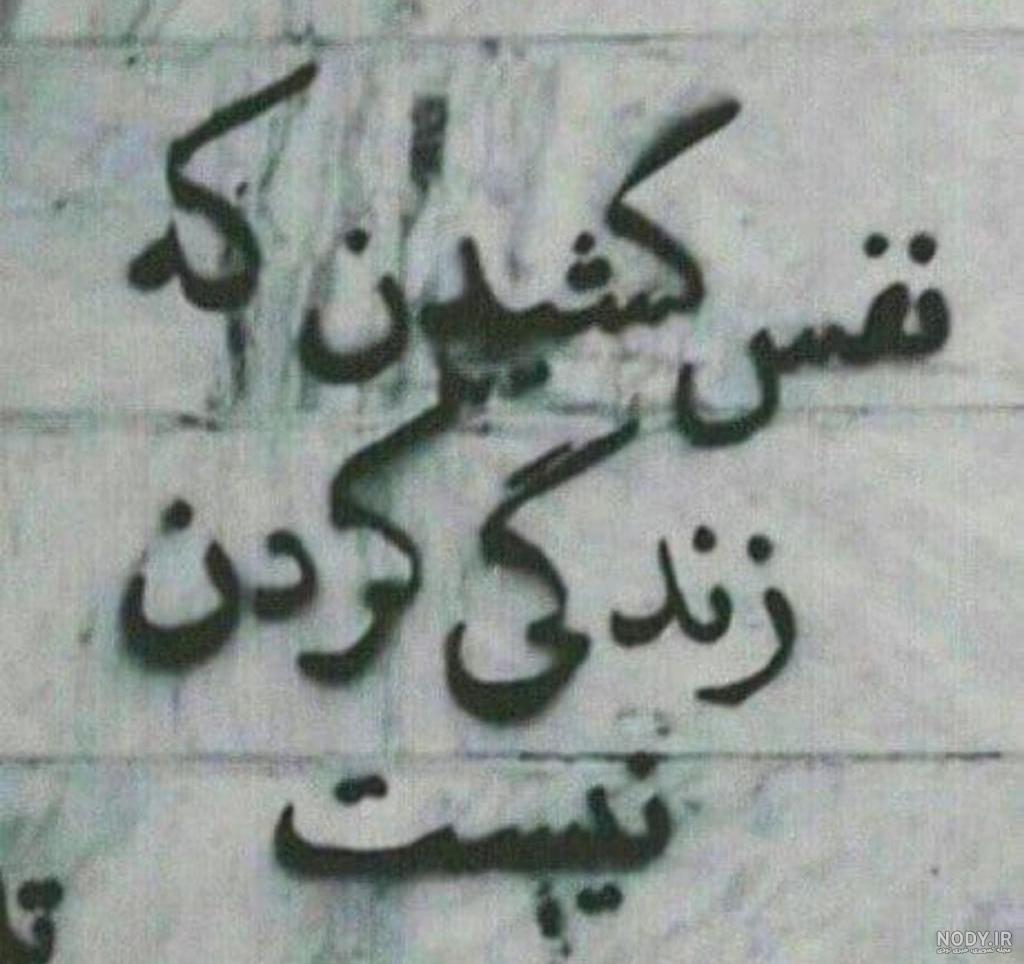 نفس کشیدن که
زندگی کردن
نیست
NODY.IR